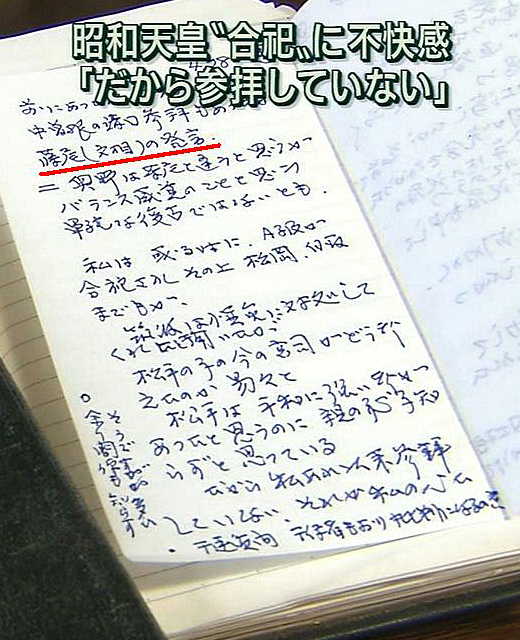 昭和天皇〝合祀〟に不快感
「だから参拝していない」
4.28
前にあった
中曽根の靖国参拝もあった
藤尾(文相)の発言。
=奥野は藤尾と違うと思うが
バランス感覚のことと思う
単純な復古ではないとも。
私は 或る時に、A級が
合祀されその上 松岡、白取
までもが、
筑波は慎重に対処して
くれたと聞いたが
松平の子の今の宮司がどう考
えたのか 易々と
松平は 平和に強い考が
あったと思うのに 親の心子知
らずと思っている
だから 私あれ以来参拝
していない、それが私の心だ